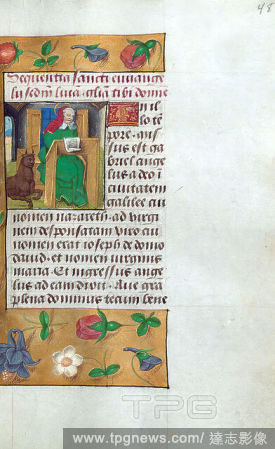 48
Sequentia sancti euuange
lii scdm lucā. gl'ia tibi domine
In il
lo tē
pore . mis
sus est ga
briel ange
lus a deo ī
ciuitatem
galilee cui
nomen nazareth . ad virgi
nem desponsatam viro cui
nomen erat ioseph de domo
dauid . et nomen uirginis
maria . Et ingressus ange
lus ad eam dixit . Aue gra
plena dominus tecum bene
TPG
www.tpgnews.com / 達志影像